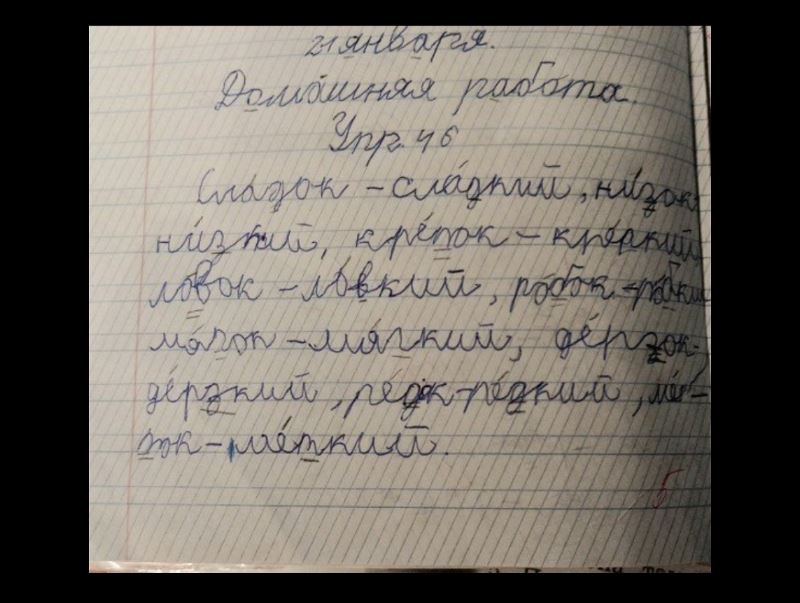 21 января.
Домашняя работа.
Упр. 46
Сладок – сладкий, низок
низкий, крепок – крепкий
ловок – ловкий, робок – робкий
мягок – мягкий, дерзок-
дерзкий, редок-редкий, ме-
ток – меткий.
5